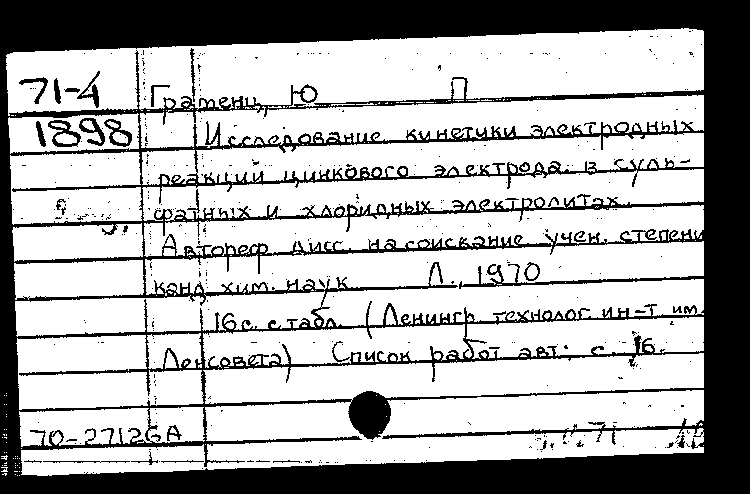 71-4
1898
Гратенц, Ю П
Исследование кинетики электродных
реакций цинкового электрода в суль-
фатных и хлоридных электролитах.
Автореф дисс. на соискание учен. степени
канд хим. наук Л., 1970
16 с. с табл. (Ленингр. технолог. ин-т им.
Ленсовета) Список работ авт: с. 16.
70-27126А